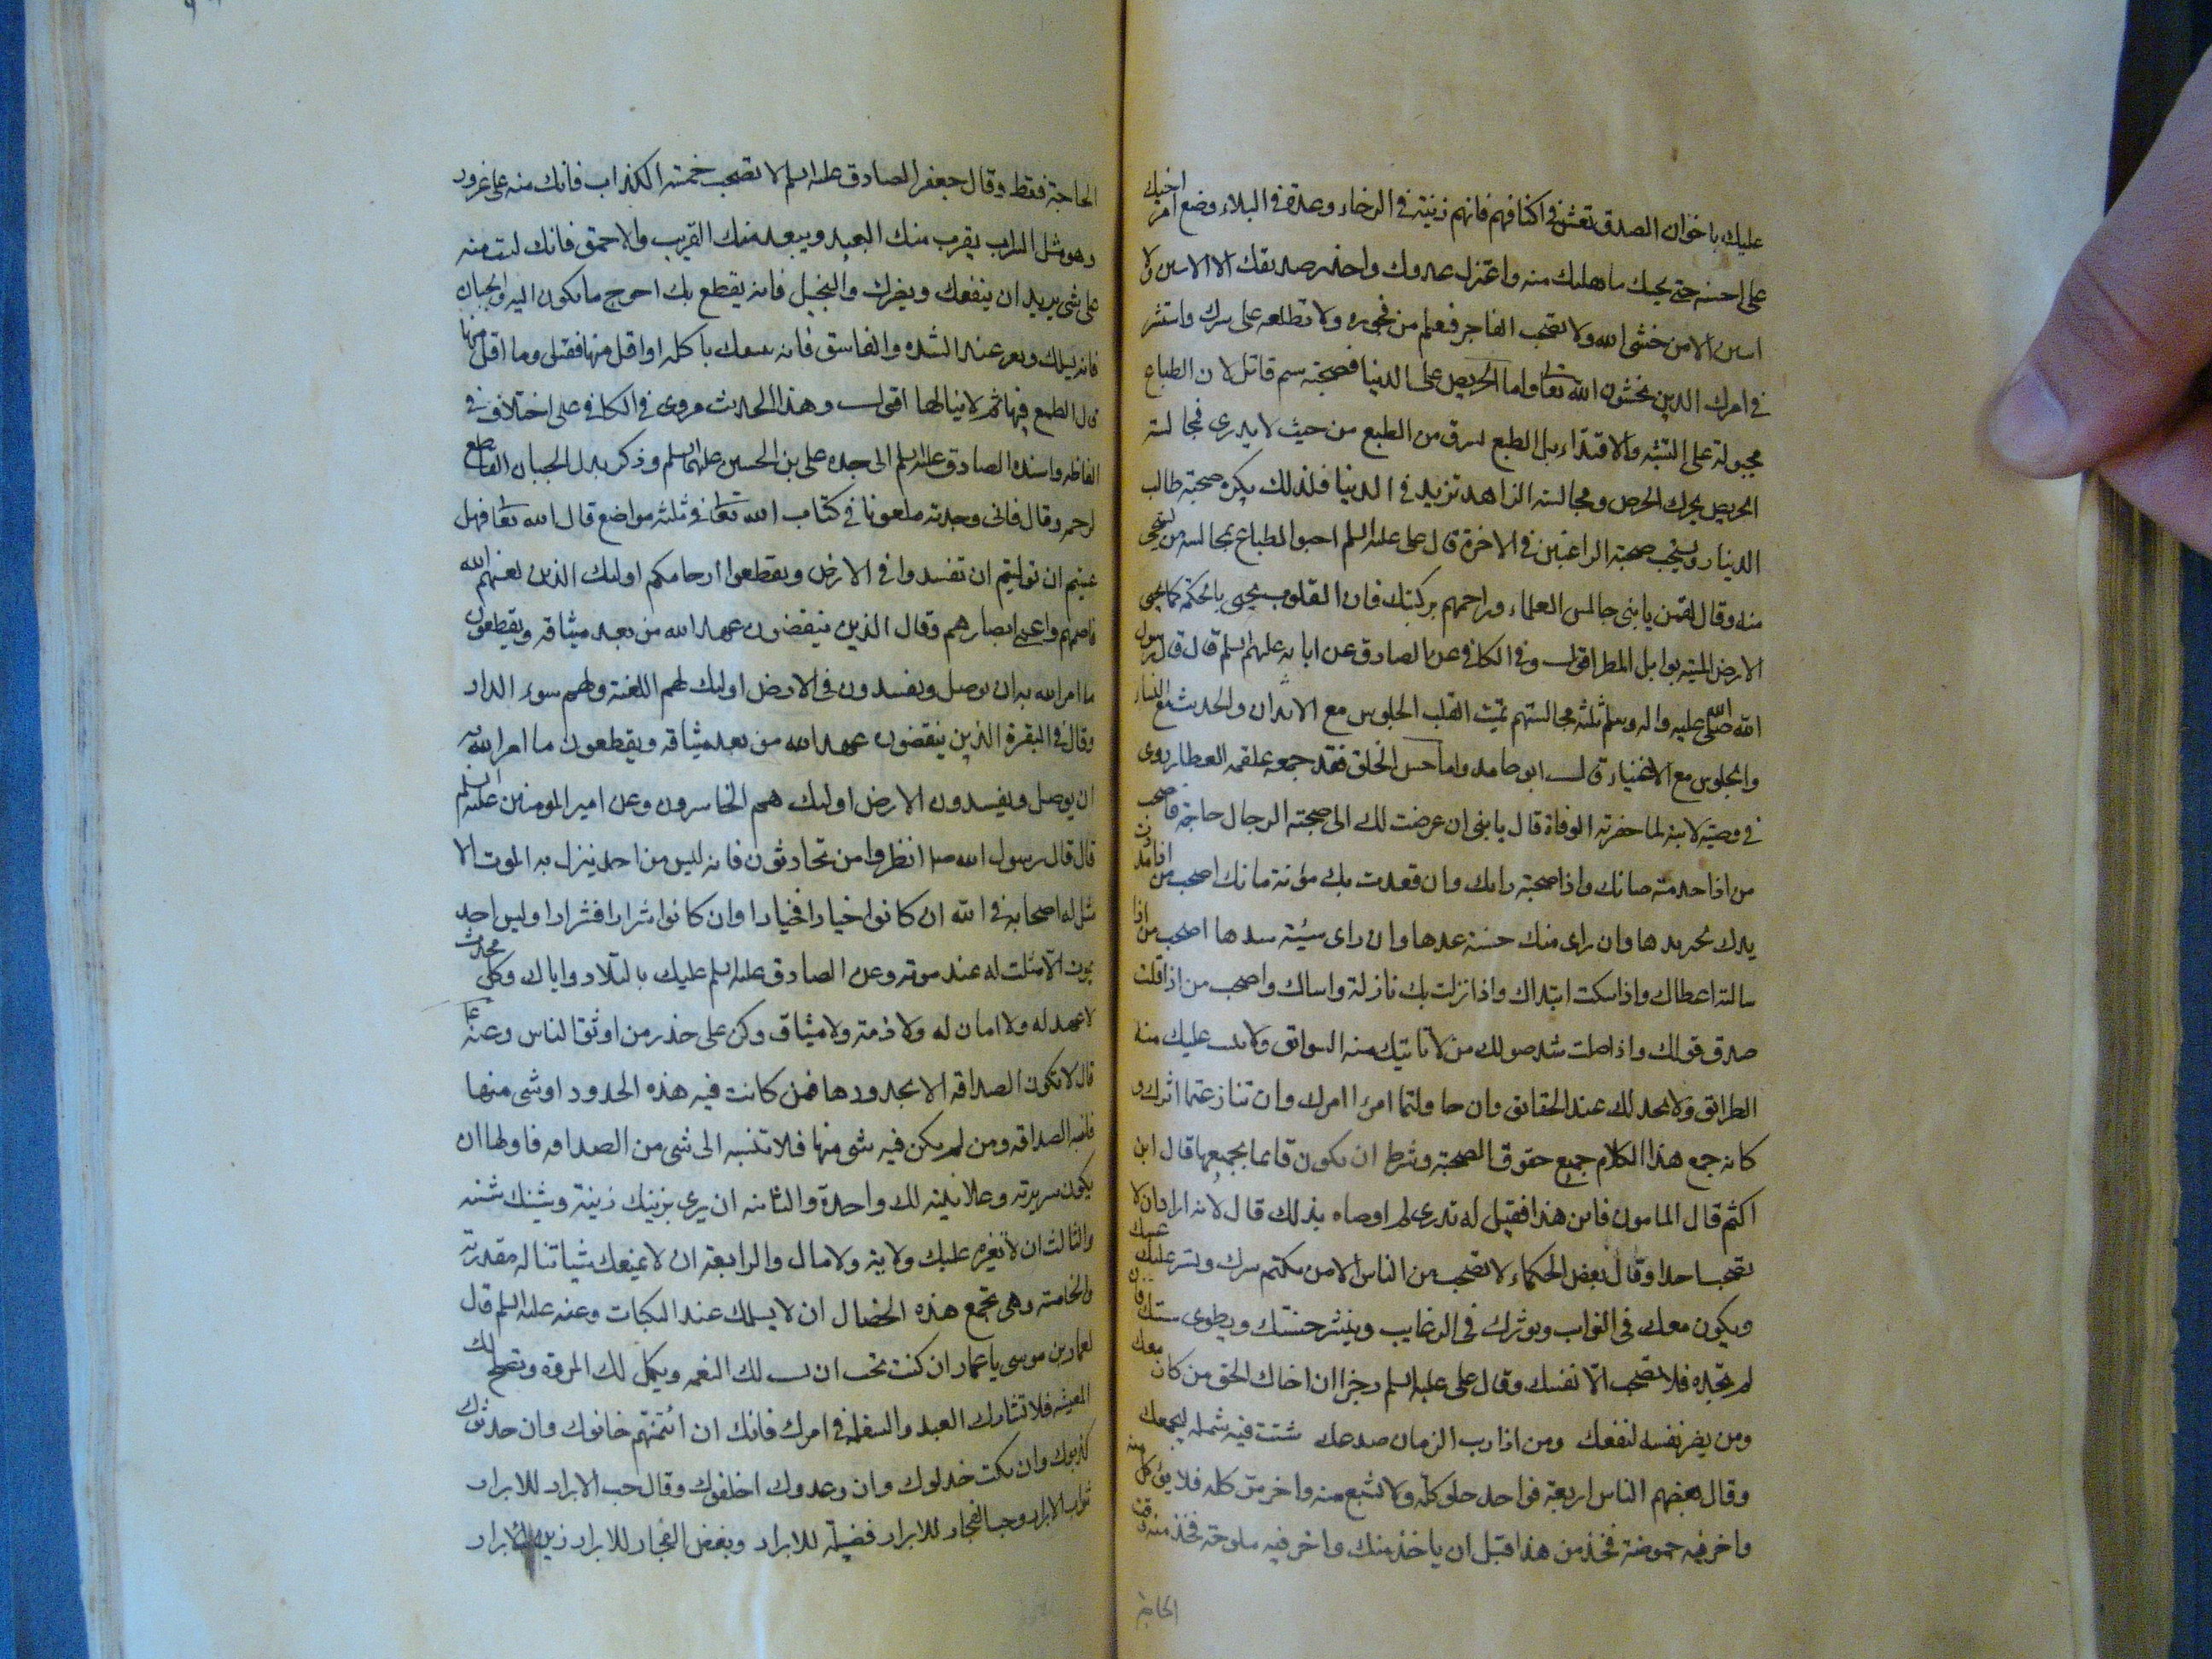 عليك باخوان الصدق تعش في اكنافهم فانهم زينة في الرخاء وعدة في البلاء وضع امر اخيك
على احسنه حتى يجيك ما يغلبك منه واعتزل عدوك واحذر صديقك الا الامين ولا
امين الا من خشى الله ولا تصحب الفاجر فتعلم من فجوره ولا تطلعه على سرك واستشر
في امرك الذين يخشون الله تعالى واما الحريص على الدنيا فصحبته سم قاتل لان الطباع
مجبولة على التشبه والاقتداء بل الطبع يسرق من الطبع من حيث لا يدرى فمجالسة
الحريص يحرك الحرص ومجالسة الزاهد تزيد في الدنيا فلذلك يكره صحبة طالب
الدنيا ويستحب صحبة الراغبين في الاخرة قال على عليه السلم احيوا الطباع بمجالسة من يستحيى
منه وقال لقمن يا بنى جالس العلماء وزاحمهم بركبتك فان القلوب يحيى بالحكمة كما يحيى
الارض الميتة بوابل المطر اقول وفي الكافي عن الصادق عن ابائه عليهم السلم قال قال رسول
الله صلى الله عليه واله وسلم ثلثة مجالستهم تميت القلب الجلوس مع الانذال والحديث مع النساء
والجلوس مع الاغنياء قال ابو حامد واما حسن الخلق فقد جمعه علقمة العطاردى
في وصيته لابنه لما حضرته الوفاة قال يا بنى ان عرضت لك الى صحبة الرجال حاجة فاصحب
من اذا خدمته صانك واذا صحبته زانك وان قعدت بك مؤنة مانك اصحب من اذا مددت
يدك بخير مدها وان راى منك حسنة عدها وان راى سيئة سدها اصحب من اذا
سالته اعطاك واذا سكت ابتداك واذا نزلت بك نازلة واساك واصحب من اذا قلت
صدق قولك واذا صلت شد صولك من لا تاتيك منه البوائق ولا عليك منه
الطرائق ولا يخذلك عند الحقائق وان حاولتما امرا امرك وان تنازعتما اثرك و
كانه جمع هذا الكلام جميع حقوق الصحبة وشرط ان يكون قائما بجميعها قال ابن
اكثم قال المامون فاين هذا فقيل له تدرى لم اوصاه بذلك قال لانه اراد ان لا
تصحب احدا وقال بعض الحكماء لا تصحب من الناس الا من يكتم سرك ويستر عليك عيبك
ويكون معك في النوايب ويوثرك في الرغايب وينشر حسنتك ويطوى سيئتك فان
لم تجده فلا تصحب الا نفسك وقال على عليه السلم رجزا ان اخاك الحق من كان معك
ومن يضر نفسه لينفعك ومن اذا ريب الزمان صدعك شتت فيه شمله ليجمعك
وقال بعضهم الناس اربعة فواحد حلو كله ولا تشبع منه واخر مر كله فلا يؤكل منه
واخر فيه حموضة فخذ من هذا قبل ان ياخذ منك واخر فيه ملوحة فخذ منه وقت
الحاجة
الحاجة فقط وقال جعفر الصادق عليه السلم لا تصحب خمسة الكذاب فانك منه على غرور
وهو مثل السراب يقرب منك البعيد ويبعد منك القريب والاحمق فانك لست منه
على شى يريد ان ينفعك ويضرك والبخيل فانه يقطع بك احوج ما يكون اليه والجبان
فانه يسلمك ويفر عند الشدة والفاسق فانه يبيعك باكلة او اقل منها فقيل وما اقل منها
قال الطمع فيها ثم لا ينالها اقول وهذا الحديث مروى في الكافي على اختلاف في
الفاظه واسنده الصادق عليه السلم الى جده على بن الحسين عليهما السلم وذكر بدل الجبان القاطع
لرحمه وقال فانى وجدته ملعونا في كتاب الله تعالى في ثلثة مواضع قال الله تعالى فهل
عسيتم ان توليتم ان تفسدوا في الارض وتقطعوا ارحامكم اولئك الذين لعنهم الله
فاصمهم واعمى ابصارهم وقال الذين ينقضون عهد الله من بعد ميثاقه ويقطعون
ما امر الله به ان يوصل ويفسدون في الارض اولئك لهم اللعنة ولهم سوء الدار
وقال في البقرة الذين ينقضون عهد الله من بعد ميثاقه ويقطعون ما امر الله به
ان يوصل ويفسدون الارض اولئك هم الخاسرون وعن امير المومنين عليه السلم
قال قال رسول الله صلى انظروا من تحادثون فانه ليس من احد ينزل به الموت الا
مثل له اصحابه في الله ان كانوا خيارا فخيارا وان كانوا شرارا فشرارا وليس احد
يموت الا تمثلت له عند موته وعن الصادق عليه السلم عليك بالتلاد واياك وكل محدث
لا عهد له ولا امان له ولا ذمة ولا ميثاق وكن على حذر من اوثق الناس وعنه عا
قال لا تكون الصداقة الا بحدودها فمن كانت فيه هذه الحدود او شى منها
فانسبه الصداقة ومن لم يكن فيه شى منها فلا تنسبه الى شى من الصداقة فاولها ان
يكون سريرته وعلانيته لك واحدة والثانية ان يرى بزينك زينه ويشينك شينه
والثالث ان لا تغيره عليك ولاية ولا مال والرابعة ان لا يمنعك شيئا تناله مقدرته
والخامسة وهى تجمع هذه الخصال ان لا يسلمك عند النكبات وعنه عليه السلم قال
لعمار بن موسى يا عمار ان كنت تحب ان لك النعمة ويكمل لك المروة وتصلح لك
المعيشة فلا تشارك العبد والسفلة في امرك فانك ان ائتمنتهم خانوك وان حدثوك
كذبوك وان نكبت خذلوك وان وعدوك اخلفوك وقال حب الابرار للابرار
ثواب الابرار وحب الفجار للابرار فضيلة للابرار وبغض الفجار للابرار زين الابرار